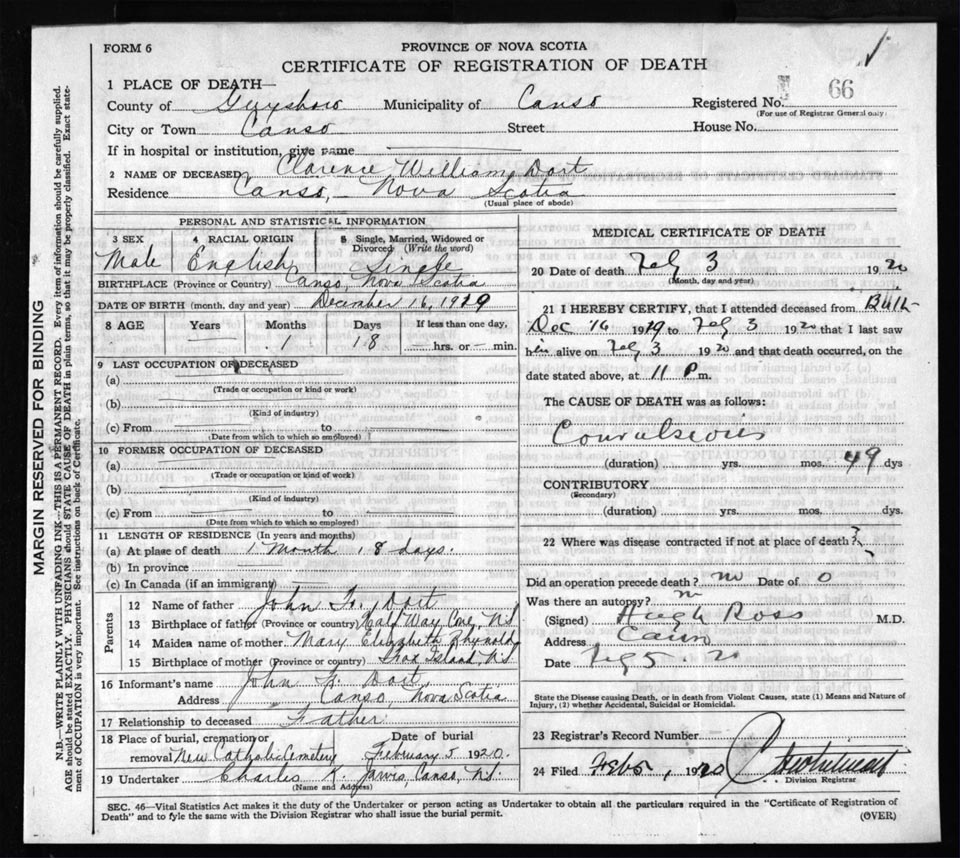 FORM 6
PROVINCE OF NOVA SCOTIA
CERTIFICATE OF REGISTRATION OF DEATH
66
1 PLACE OF DEATH—
County of Guysboro Municipality of Canso Registered No.
(For use of Registrar General only)
City or Town Canso Street House No.
If in hospital or institution, give name
2 NAME OF DECEASED Clarence William Dort
Residence Canso, Nova Scotia
(Usual place of abode)
PERSONAL AND STATISTICAL INFORMATION
3 SEX Male
4 RACIAL ORIGIN English
5 Single, Married, Widowed or Divorced (Write the word) Single
BIRTHPLACE (Province or Country) Canso, Nova Scotia
DATE OF BIRTH (month, day and year) December 16, 1919
8 AGE Years Months Days If less than one day,
1 18 hrs. or min.
9 LAST OCCUPATION OF DECEASED
(a)
(Trade or occupation or kind or work)
(b)
(Kind of industry)
(c) From to
(Date from which to which so employed)
10 FORMER OCCUPATION OF DECEASED
(a)
(Trade or occupation or kind of work)
(b)
(Kind of industry)
(c) From to
(Date from which to which so employed)
11 LENGTH OF RESIDENCE (In years and months)
(a) At place of death 1 Month 18 days.
(b) In province
(c) In Canada (if an immigrant)
Parents
12 Name of father John F. Dort
13 Birthplace of father (Province or country) Half Way Cove, N.S
14 Maiden name of mother Mary Elizabeth
15 Birthplace of mother (Province or country) Island N.S
16 Informant's name John F. Dort
Address Canso, Nova Scotia
17 Relationship to deceased Father
18 Place of burial, cremation or removal New Catholic Cemetery
Date of burial February 5 1920.
19 Undertaker Charles K. Jarvis, Canso, N.S.
(Name and Address)
MEDICAL CERTIFICATE OF DEATH
20 Date of death Feb 3 1920
(Month, day and year)
21 I HEREBY CERTIFY, that I attended deceased from Birth
Dec 16 1919 to Feb 3 1920 that I last saw
him alive on Feb 3 1920 and that death occurred, on the
date stated above, at 11 P m.
The CAUSE OF DEATH was as follows:
Convulsions
(duration) yrs. mos. 49 dys
CONTRIBUTORY
(Secondary)
(duration) yrs. mos. dys.
22 Where was disease contracted if not at place of death?
Did an operation precede death? no Date of 0
Was there an autopsy? n
(Signed) Hugh Ross M.D.
Address Canso
Date Feb 5. 20
State the Disease causing Death, or in death from Violent Causes, state (1) Means and Nature of
Injury, (2) whether Accidental, Suicidal or Homicidal.
23 Registrar's Record Number
24 Filed Feb 5, 1920
Division Registrar
SEC. 46—Vital Statistics Act makes it the duty of the Undertaker or person acting as Undertaker to obtain all the particulars required in the "Certificate of Registration of
Death" and to fyle the same with the Division Registrar who shall issue the burial permit.
(OVER)
MARGIN RESERVED FOR BINDING
N.B.—WRITE PLAINLY, WITH UNFADING INK—THIS IS A PERMANENT RECORD. Every item of information should be carefully supplied.
AGE should be stated EXACTLY. PHYSICIANS should STATE CAUSE OF DEATH in plain terms, so that it may be properly classified. Exact statement of OCCUPATION is very important. See instructions on back of Certificate.